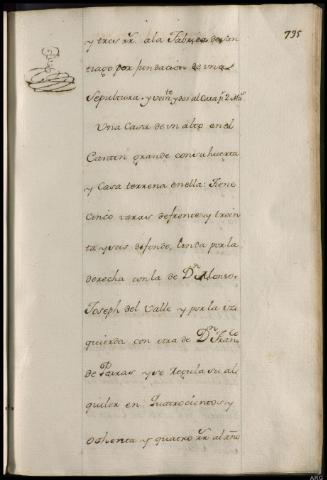 735
y tres rr. a la Fabrica de San
tiago por fundacion de una
Sepultura, y veinte y dos al Cura pr. 2 Ms.
Una Casa de un alto en el
Canton grande con su huerta
y Casa terrena en ella: Tiene
cinco varas de frente y trein
ta y seis de fondo, linda por la
derecha con la de Dn. Alonso
Joseph del Valle y por la iz
quierda con otra de Dn. Franco.
de Parras y se regula su al
quiler en quatrocientos y
ochenta y quatro rr. al año